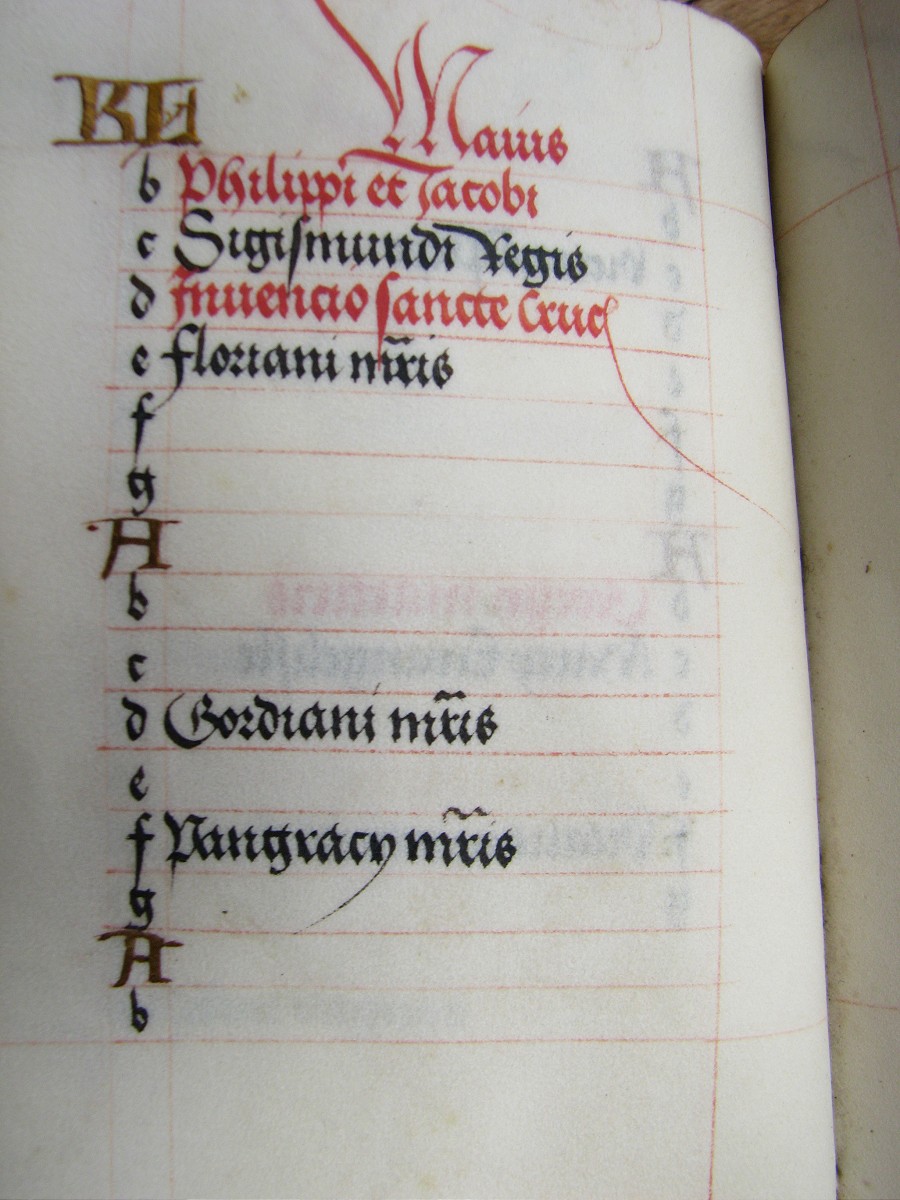 KL Maius
b Philippi et Jacobi
c Sigismundi Regis
d Inuencio sancte Cruc
e floriani mr̄is
f
g
A
b
c
d Gordiani mr̄is
e
f Pangracy mr̄is
g
A
b